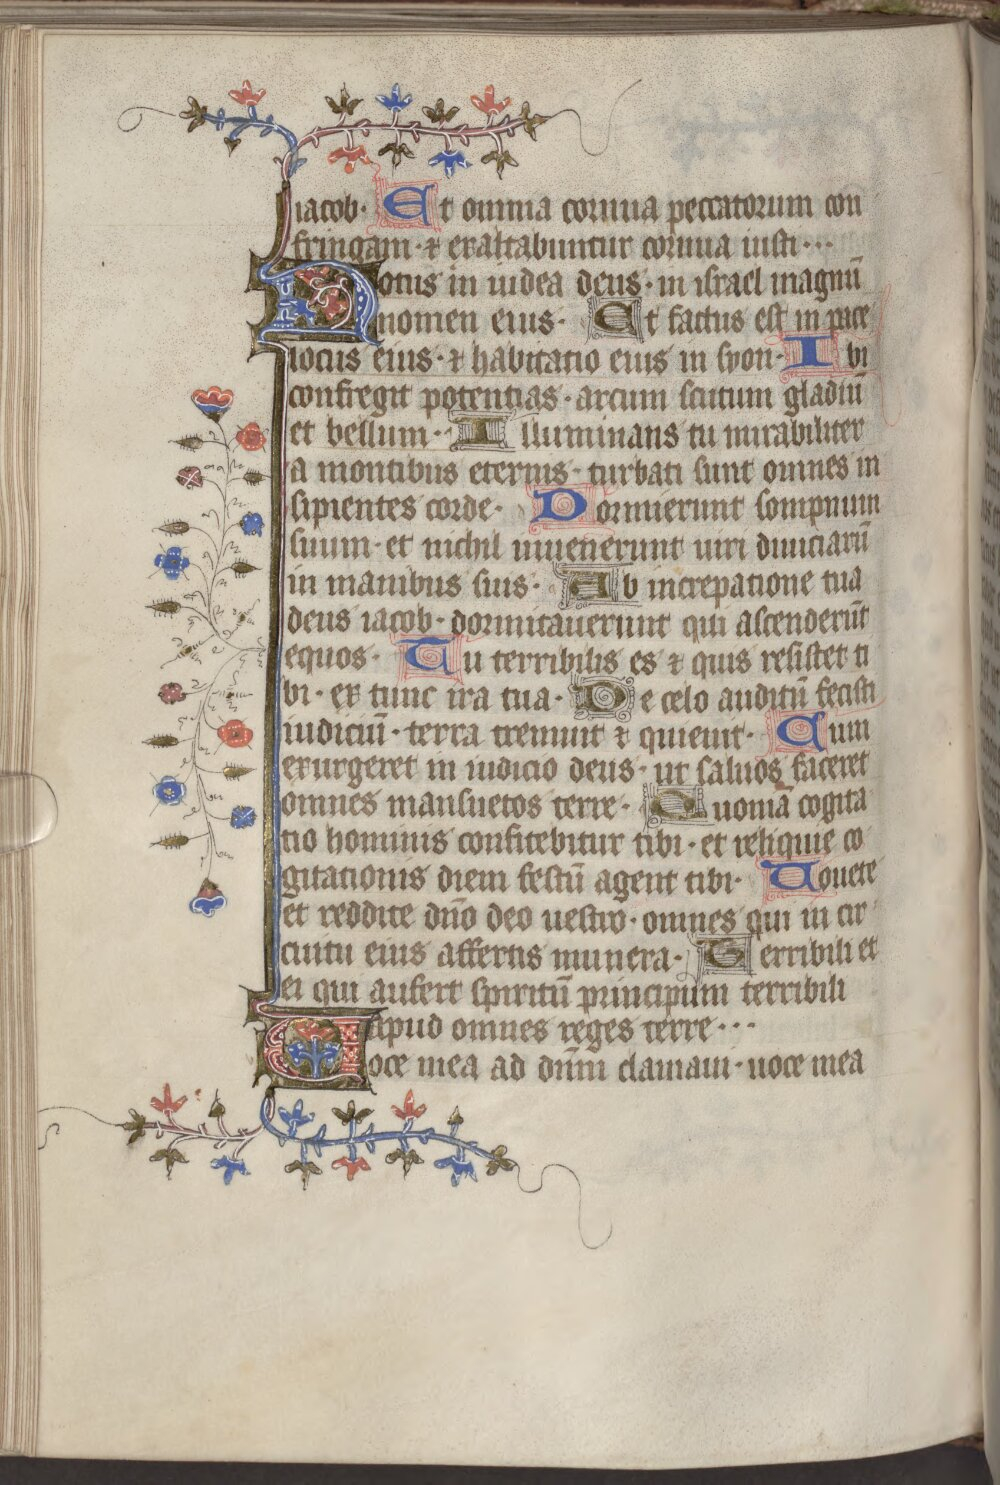 iacob· Et omnia cornua peccatorum con
fringam· ⁊ exaltabuntur cornua iusti···
Notus in iudea deus· in israel magnū
nomen eius· Et factus est in pace
locus eius· ⁊ habitatio eius in syon· Ibi
confregit potentias· arcum scutum gladiū
et bellum· Illuminans tu mirabiliter
a montibus eternis· turbati sunt omnes in
sipientes corde· Dormierunt sompnum
suum· et nichil inuenerunt uiri diuiciarū
in manibus suis· Ab increpatione tua
deus iacob· dormitauerunt qui ascenderūt
equos· Tu terribilis es ⁊ quis resistet ti
bi· ex tunc ira tua· De celo auditū fecisti
iudiciū· terra tremuit ⁊ quieuit· Cum
exurgeret in iudicio deus· ut saluos faceret
omnes mansuetos terre· Quoniā cogita
tio hominis confitebitur tibi· et reliquie co
gitationis diem festū agent tibi· Uouete
et reddite dn̄o deo uestro· omnes qui in cir
cuitu eius affertis munera· Terribili et
ei qui aufert spiritū principum terribili
apud omnes reges terre···
Uoce mea ad dn̄m clamaui· uoce mea